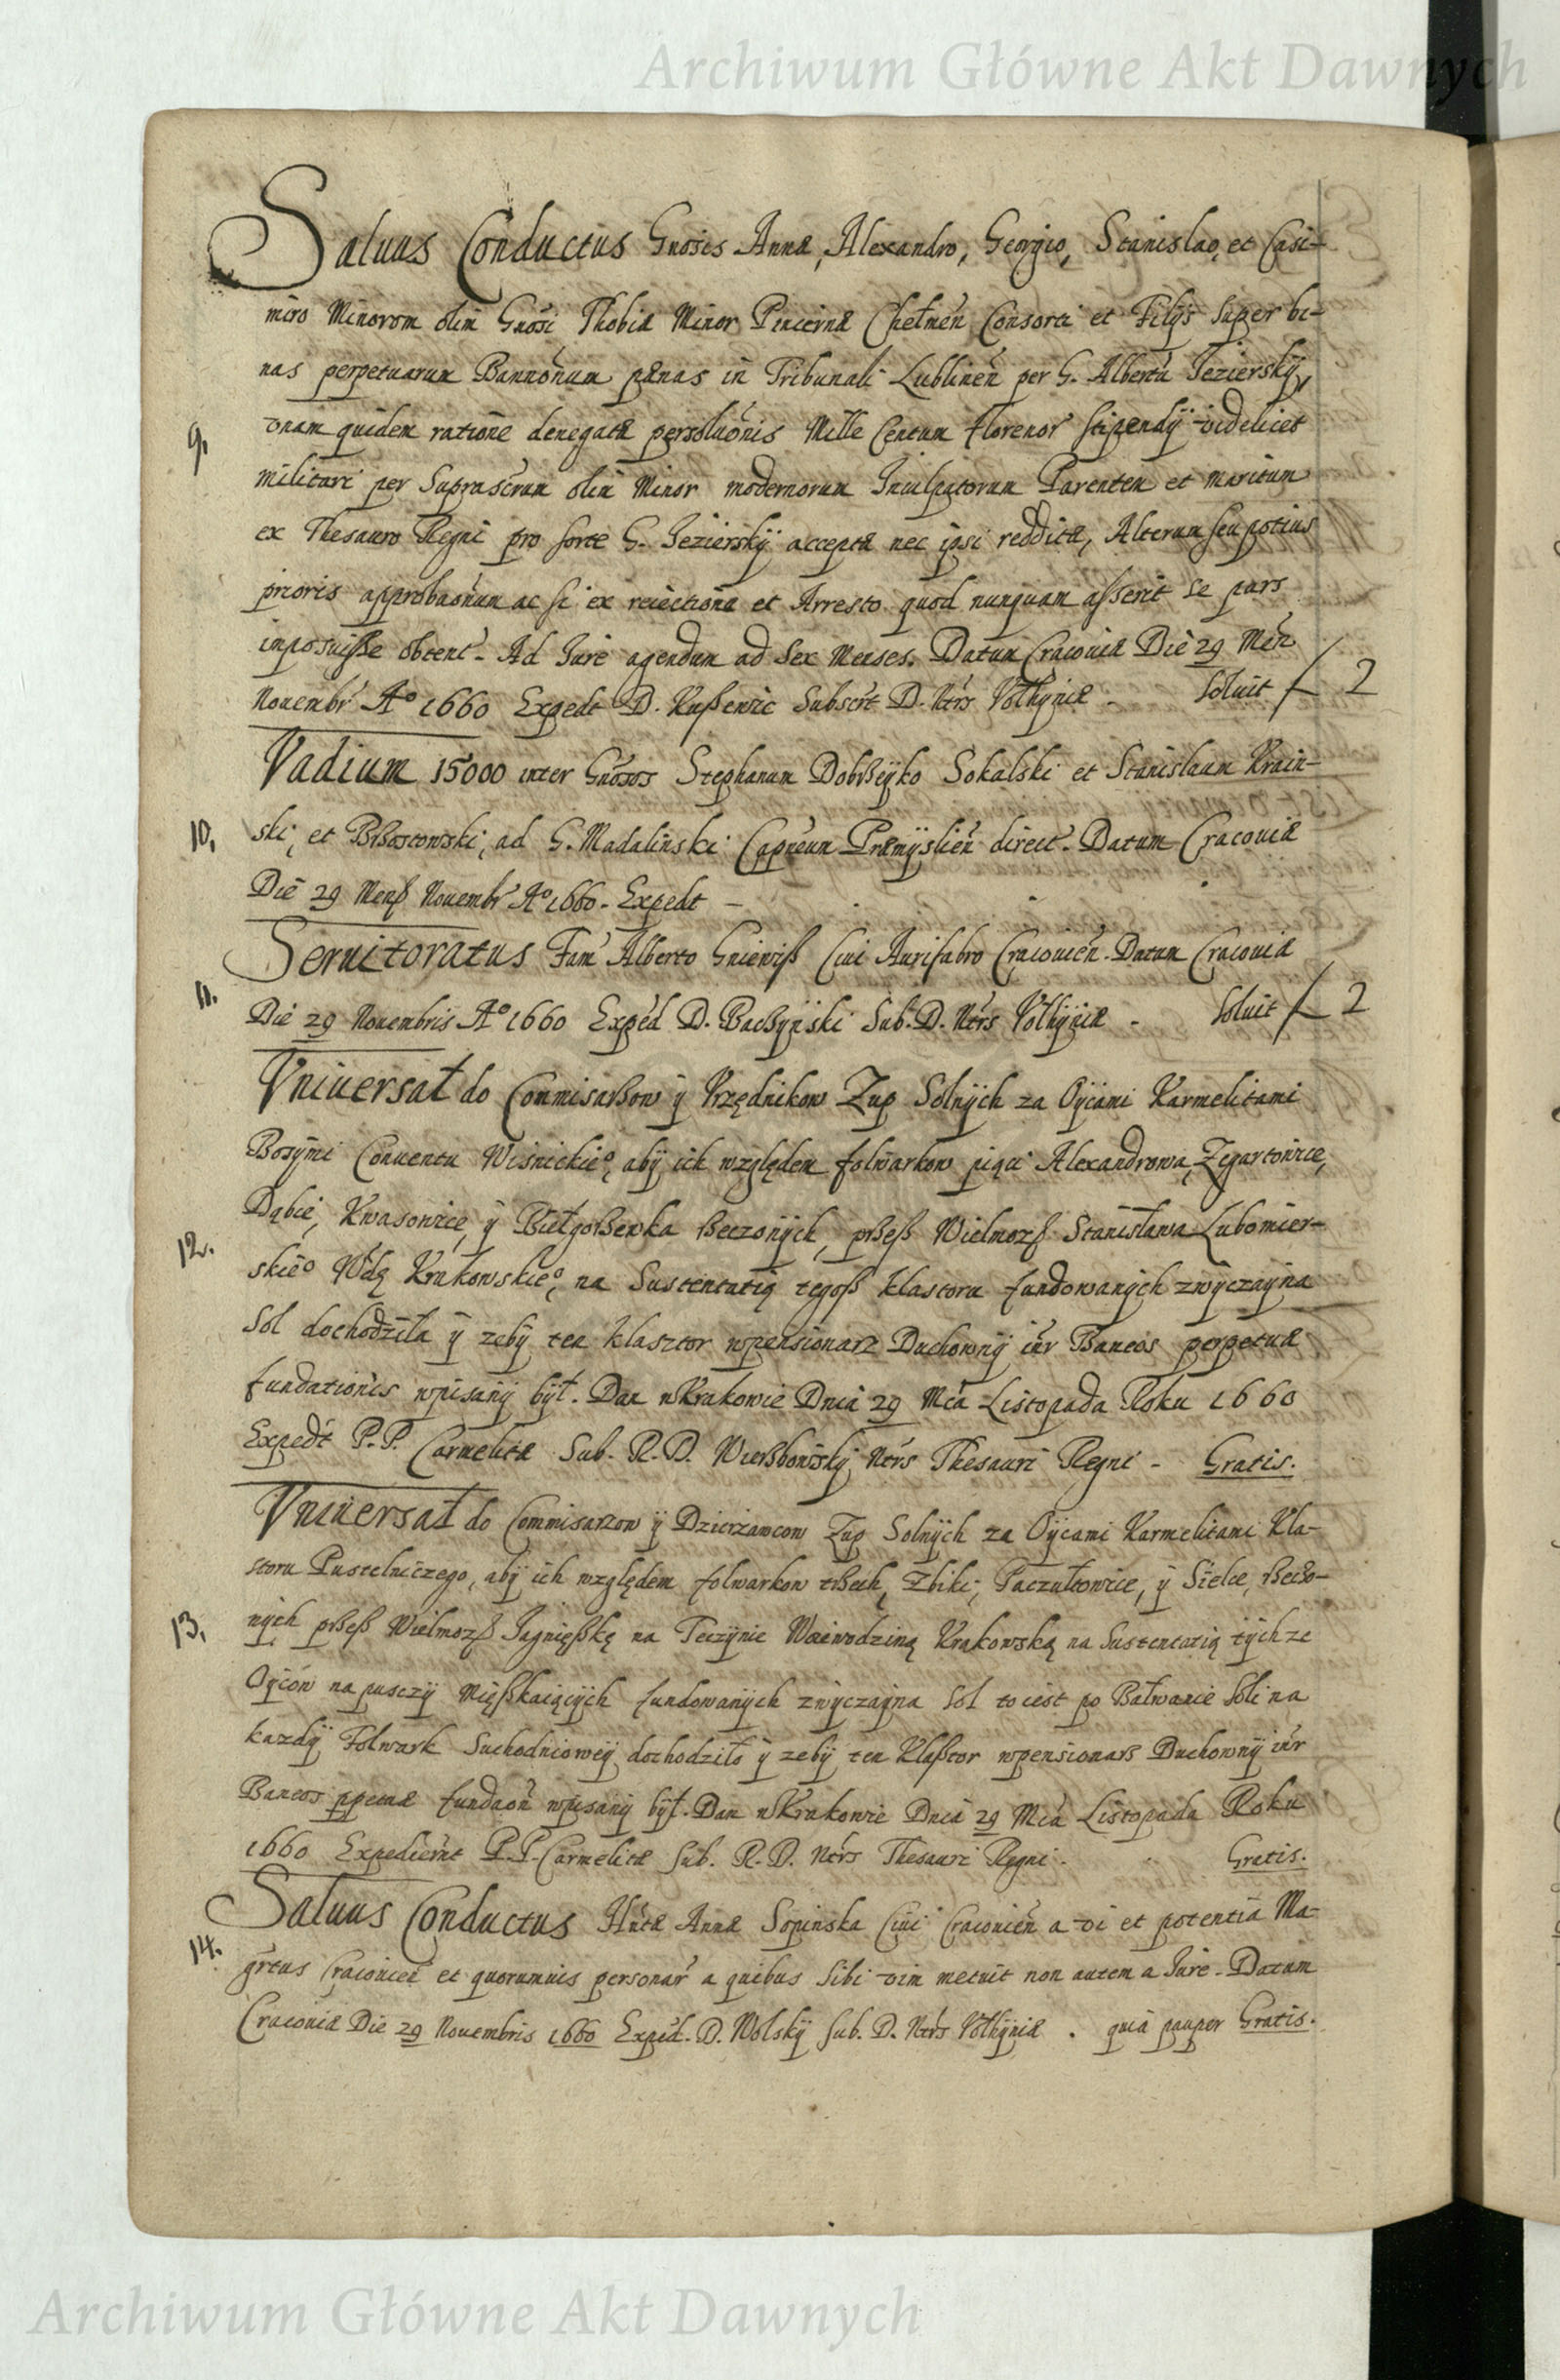 Archiwum Główne Akt Dawnych
Saluus Conductus Gnosis Annæ, Alexandro, Georgio, Stanislao, et Casi-
miro Minorom olim Gnosi Thobiæ Minor Pincernæ Chelmen Consorti et Filÿs super bi-
nas perpetuarum Bannonum pænas in Tribunali Lublinen per G. Albertu Jezierskÿ,
9. vnam quidem ratione denegatæ persoluonis Mille Centum florenor stipendÿ videlicet
militari per Suprascrum olim Minor modernorum Inculpatorum Parentem et maritum
ex Thesauro Regni pro sorte G. Jezierskÿ acceptæ nec ipsi redditæ, Alteram seu potius
prioris approbaonum ac si ex reiectione et Arresto quod nunquam asserit se pars
inposuisse obtent. Ad Jure agendum ad Sex Menses. Datum Cracouiæ Die 29 Men
Nouembr Aº 1660 Expedt D. Kußewic Subscrt D. Ntrs Volhyniæ. Soluit f 2
Vadium 15000 inter Gnosos Stephanum Dobßeÿko Sokalski et Stanislaum Krain-
10. ski, et Bßostowski, ad G. Madalinski Capneum Præmÿslien direct. Datum Cracouiæ
Die 29 Menß Nouembr Aº 1660. Expedt –
Seruitoratus Fam Alberto Gniewiß Ciui Aurifabro Cracouien. Datum Cracouiæ
11. Die 29 Nouembris Aº 1660 Exped D. Bacßÿnski Sub. D. Ntrs Volhÿniæ. Soluit f 2
Vniuersał do Commisarßow ÿ Vrzędnikow Zup Solnÿch za Oÿcami Karmelitami
Bosÿmi Conuentu Wisnickieº, abÿ ich względem folwarkow pięci Alexandrowa, Zegartowice,
Dąbie, Kwasowice, ÿ Białgoßewka Rzeczonÿch, przeß Wielmozß Stanisława Lubomier-
12. skieº Wdę Krakowskieº, na Sustentatią tegoß klastoru fundowanÿch zwÿczaÿna
Sol dochodziła ÿ zebÿ ten klasztor wpensionarz Duchownÿ inr Baneos perpetuæ
fundationis wpisanÿ bÿł. Dan w Krakowie Dnia 29 Mca Listopada Roku 1660
Expedt P.P. Carmelitæ Sub. R. D. Wierßbowskÿ Ntrs Thesauri Regni – Gratis.
Vniuersał do Commisarzow ÿ Dzierzawcow Zup Solnÿch za Oÿcami Karmelitami Kla-
storu Pustelniczego, abÿ ich względem folwarkow trßech, Zbiki, Paczułtowice, ÿ Sielce, rßeczo-
13. nÿch przeß Wielmozß Jagnięßkę na Teczÿnie Woiewodziną Krakowską na Sustentatią tÿchze
Oÿców na pusczÿ Mięßkaiącÿch fundowanÿch zwÿczaÿna Sol to iest po Bałwanie Soli na
kazdÿ Folwark Suchodnioweÿ dochodziło ÿ zebÿ ten Klaßtor wpensionarß Duchownÿ inr
Baneos ppetuæ fundaon wpisanÿ bÿł. Dan w Krakowie Dnia 29 Mca Listopada Roku
1660 Expedierut P.P. Carmelitæ Sub. R. D. Ntrs Thesauri Regni. Gratis.
Saluus Conductus Hntæ Annæ Sopinska Ciui Cracouien a vi et potentia Ma-
14. grtus Cracouien et quorumuis personar a quibus sibi vim metuit non autem a Jure. Datum
Cracouiæ Die 29 Nouembris 1660 Exped. D. Wolskÿ Sub. D. Ntrs Volhÿniæ. quia pauper Gratis.
Archiwum Główne Akt Dawnych